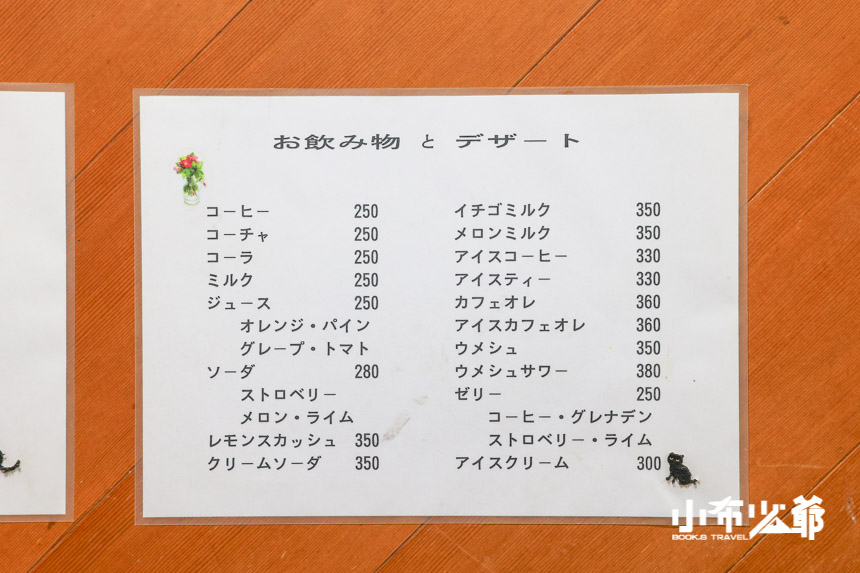 お飲み物 と デザート
コーヒー 250
コーチャ 250
コーラ 250
ミルク 250
ジュース 250
オレンジ・パイン
グレープ・トマト
ソーダ 280
ストロベリー
メロン・ライム
レモンスカッシュ 350
クリームソーダ 350
イチゴミルク 350
メロンミルク 350
アイスコーヒー 330
アイスティー 330
カフェオレ 360
アイスカフェオレ 360
ウメシュ 350
ウメシュサワー 380
ゼリー 250
コーヒー・グレナデン
ストロベリー・ライム
アイスクリーム 300
小布少爺
BOOK.S TRAVEL